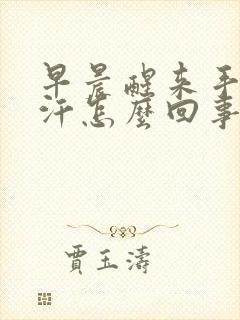 早晨醒来手
汗怎麼回事
賈玉濤